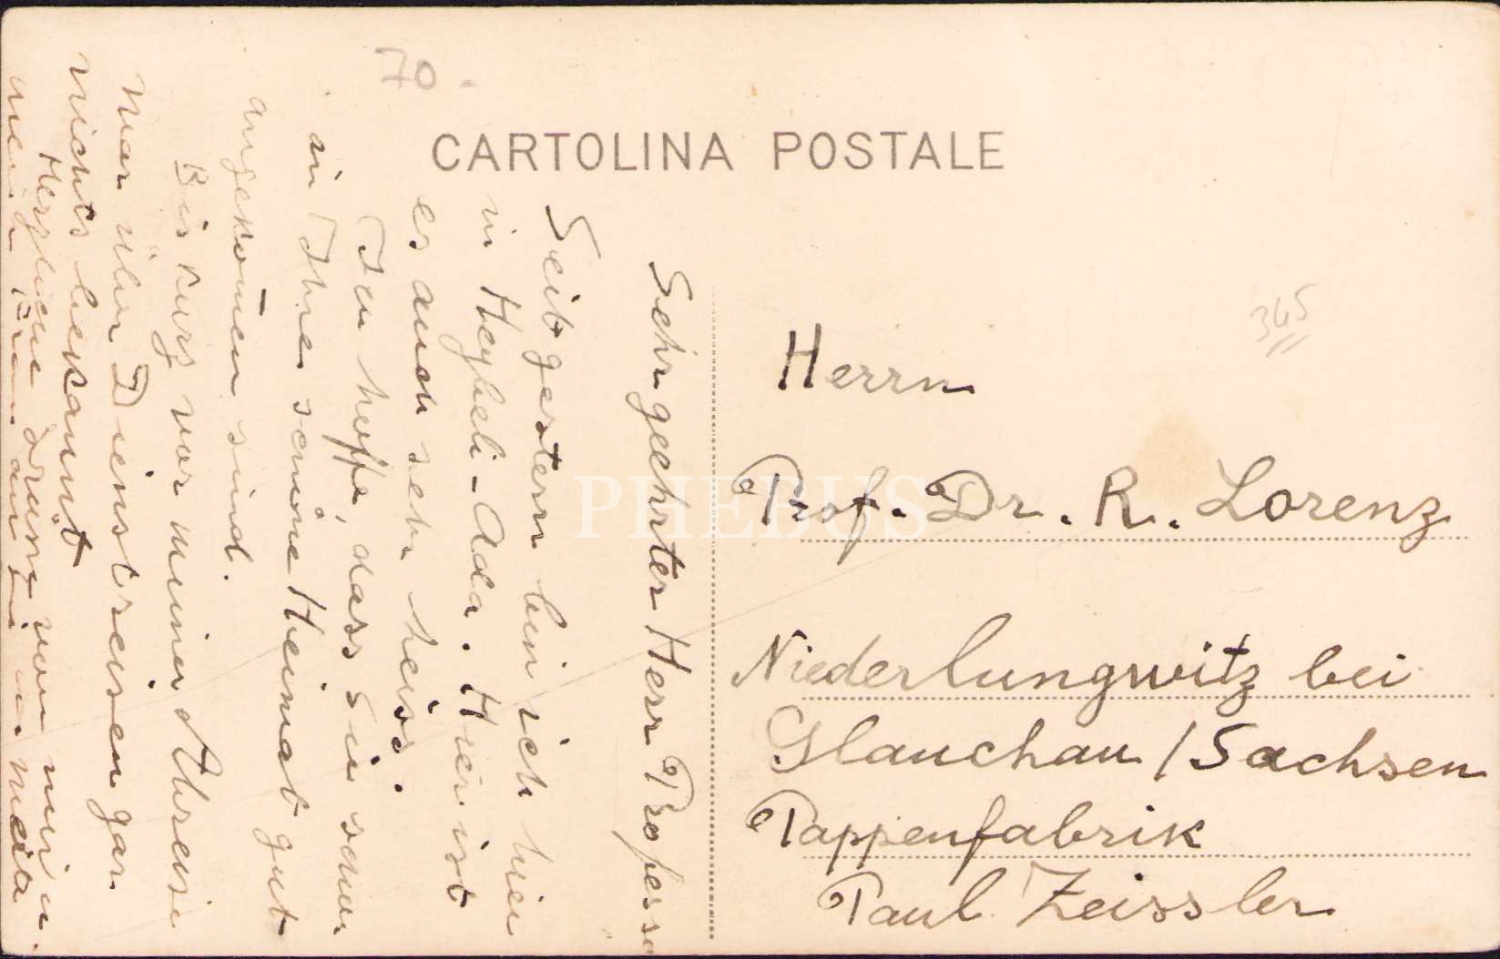 70.
CARTOLINA POSTALE
345
Sehr geehrter Herr Professo
Seit gestern bin ich hier
in Heybeli-Ada. Hier ist
es auch sehr heiss.
Ich hoffe, dass Sie schon
in Ihre schöne Heimat gut
angekom̄en sind.
Bis kurz vor meiner Abreise
war über Dienstreisen gar
nichts bekannt
Herzliche Grüsse von mir u.
meiner Frau an Sie u.
Herrn
Prof. Dr. R. Lorenz
Niederlungwitz bei
Glauchau / Sachsen
Pappenfabrik
Paul Zeissler
PHEBUS